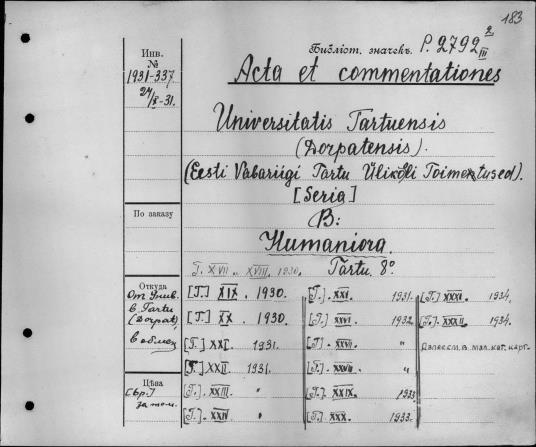 183
Библіот. значекъ P. 2792 2/III
Инв. №
1931-337
24/X-31.
Acta et commentationes
Universitatis Tartuensis
(Dorpatensis).
(Eesti Vabariigi Tartu Ülikooli Toimetused).
[Seria]
B:
По заказу
Humaniora.
Т. XVII . XVIII. 1930. Tartu. 8º
Откуда
От Унив.
в Tartu
(Dorpat),
в обмен
Цѣна
[Т.] XIX. 1930.
[Т.] XX. 1930.
[Т.] XXI. 1931.
[Т.] XXII. 1931.
[Т.]. XXIII. "
[Т.]. XXIV. "
1931.
[Т.]. XXVI. 1932.
[Т.]. "
[Т.]. "
[Т.]. XXIX. 1933
[Т.]. XXX. 1933.
[Т.] XXXI. 1934.
[Т.]. XXXII. 1934.
Далее см. в мал. кат. карт.